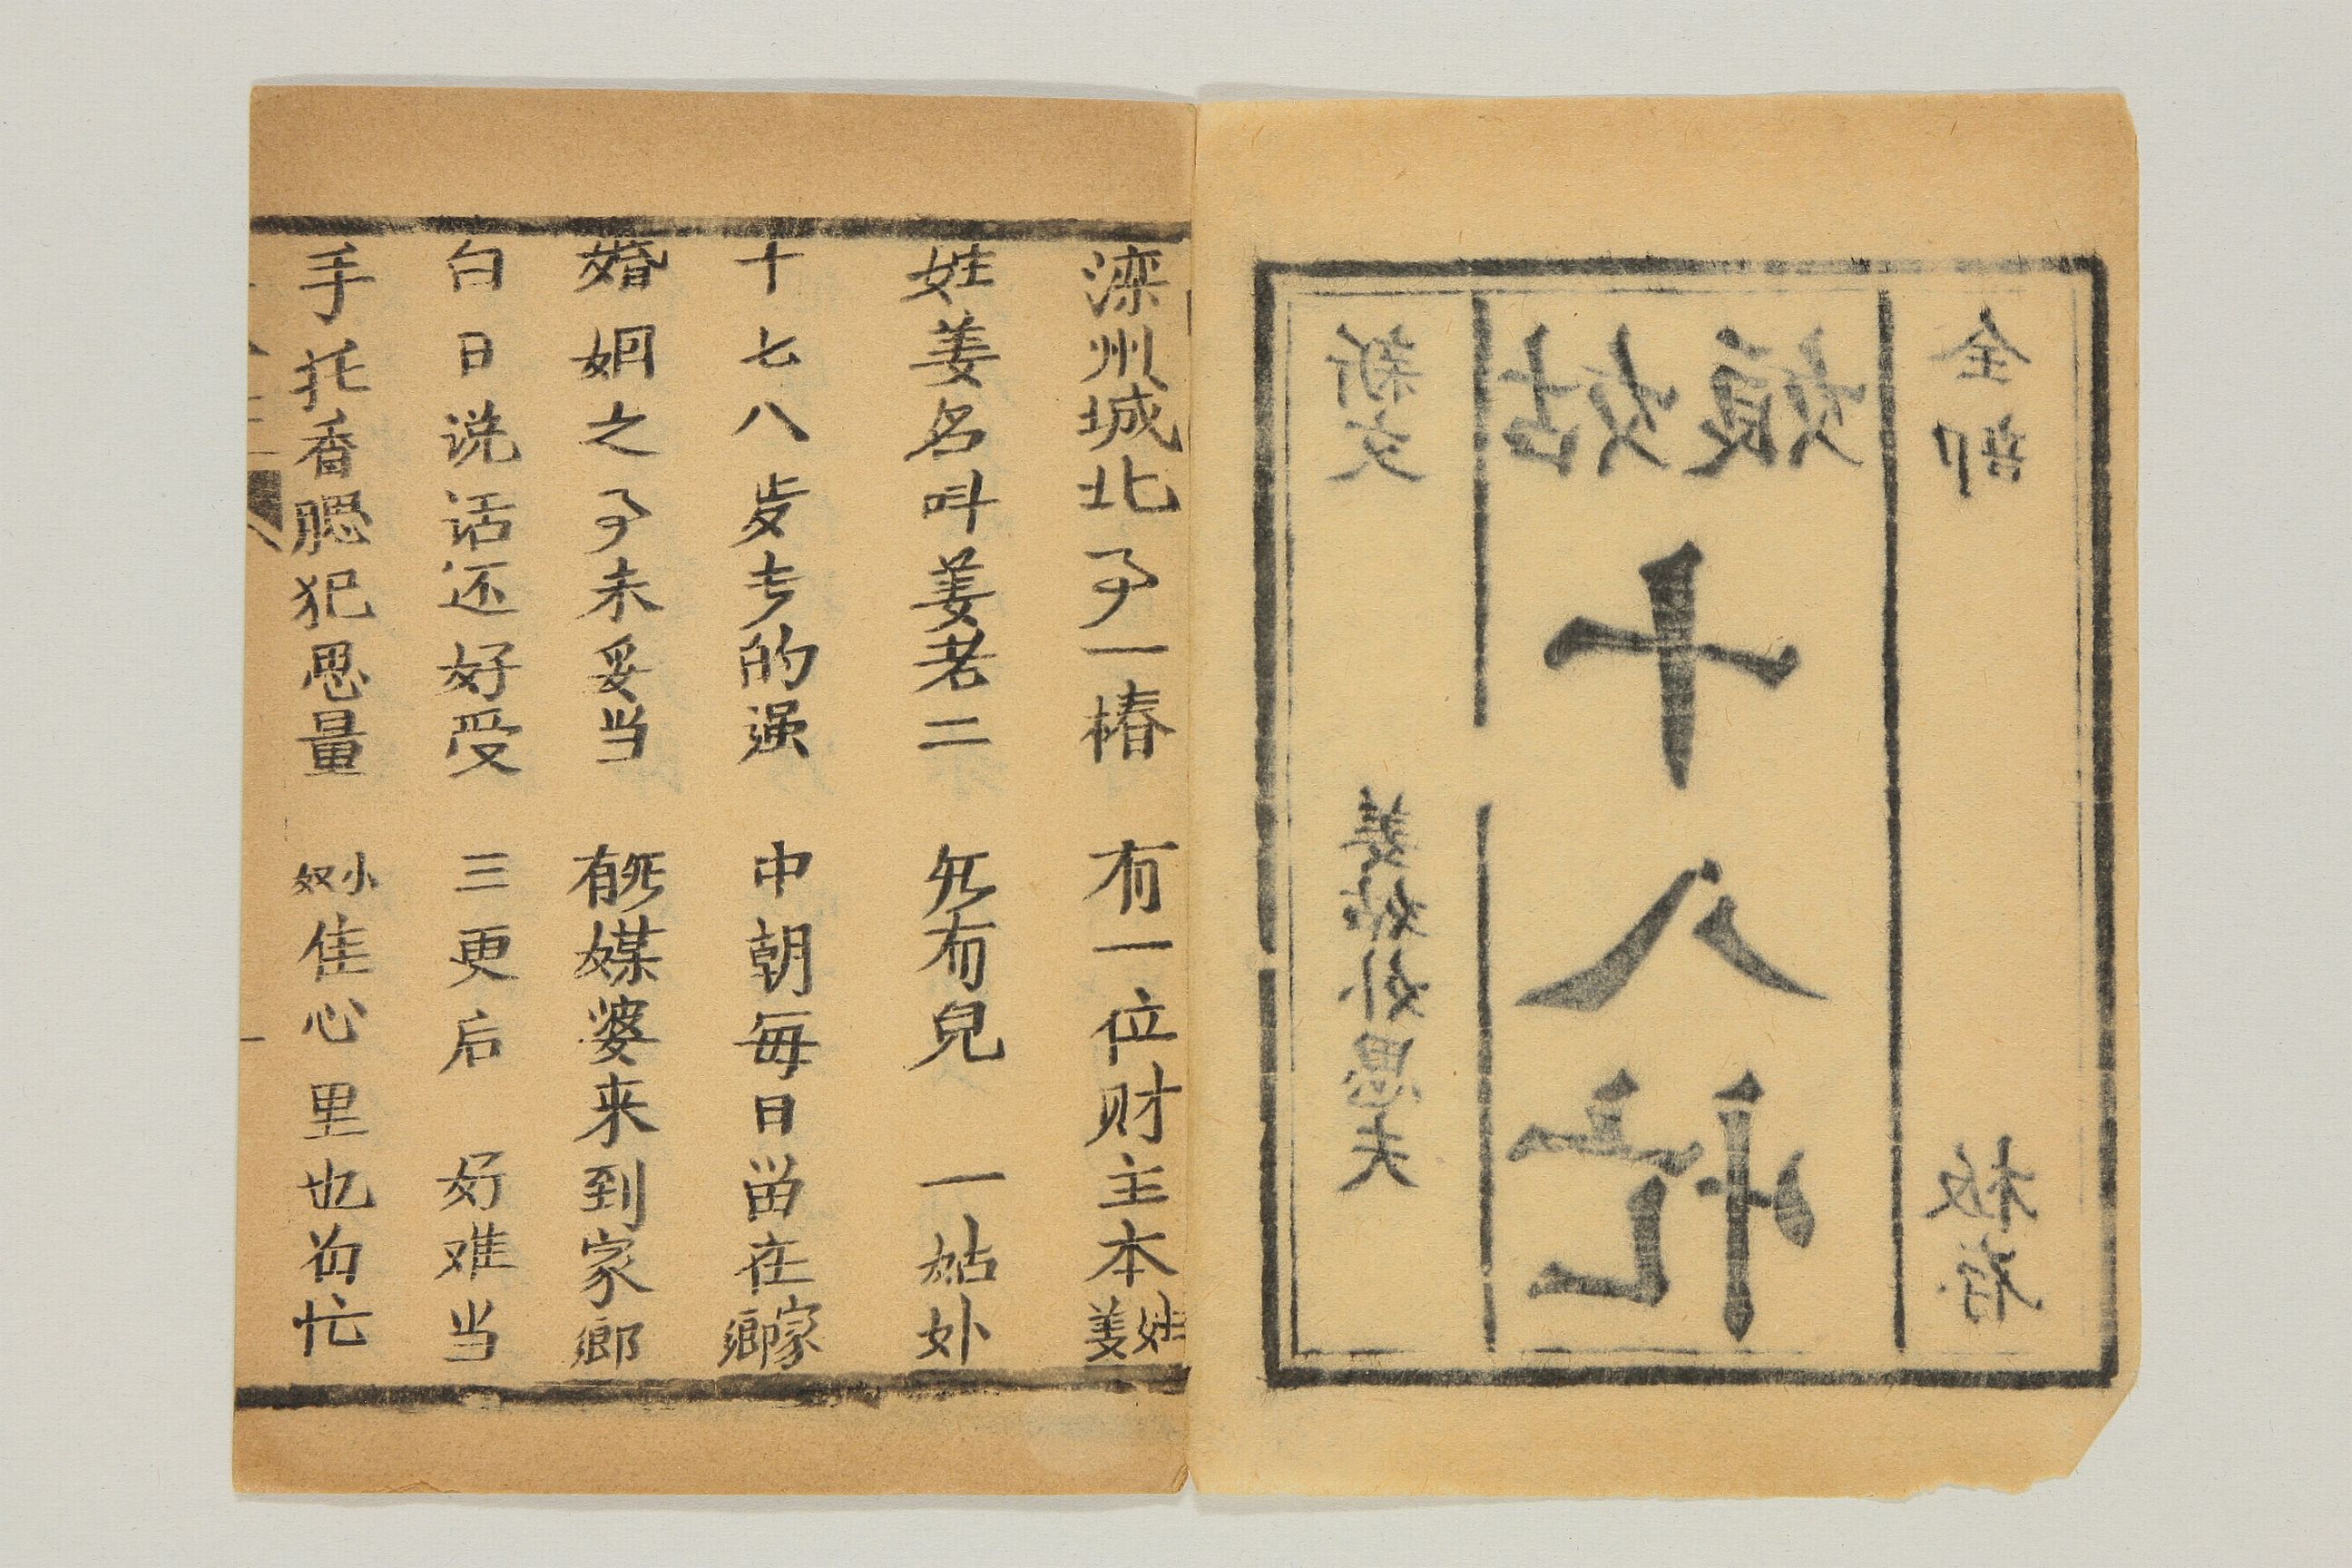 新文 姜姑娘思夫
姑娘
十八忙
全部 板存
滦州城北事一樁 有一位财主本姓姜
姓姜名叫姜老二 无有兒 一姑娘
十七八岁专的强 中朝每日留在家鄉
婚姻之事未妥当 有无媒婆来到家鄉
白日说话还好受 三更后 好难当
手托香腮犯思量 小奴隹心里也着忙